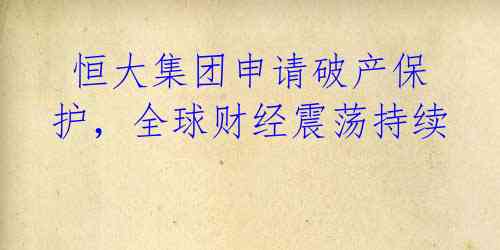 恒大集团申请破产保
护，全球财经震荡持续